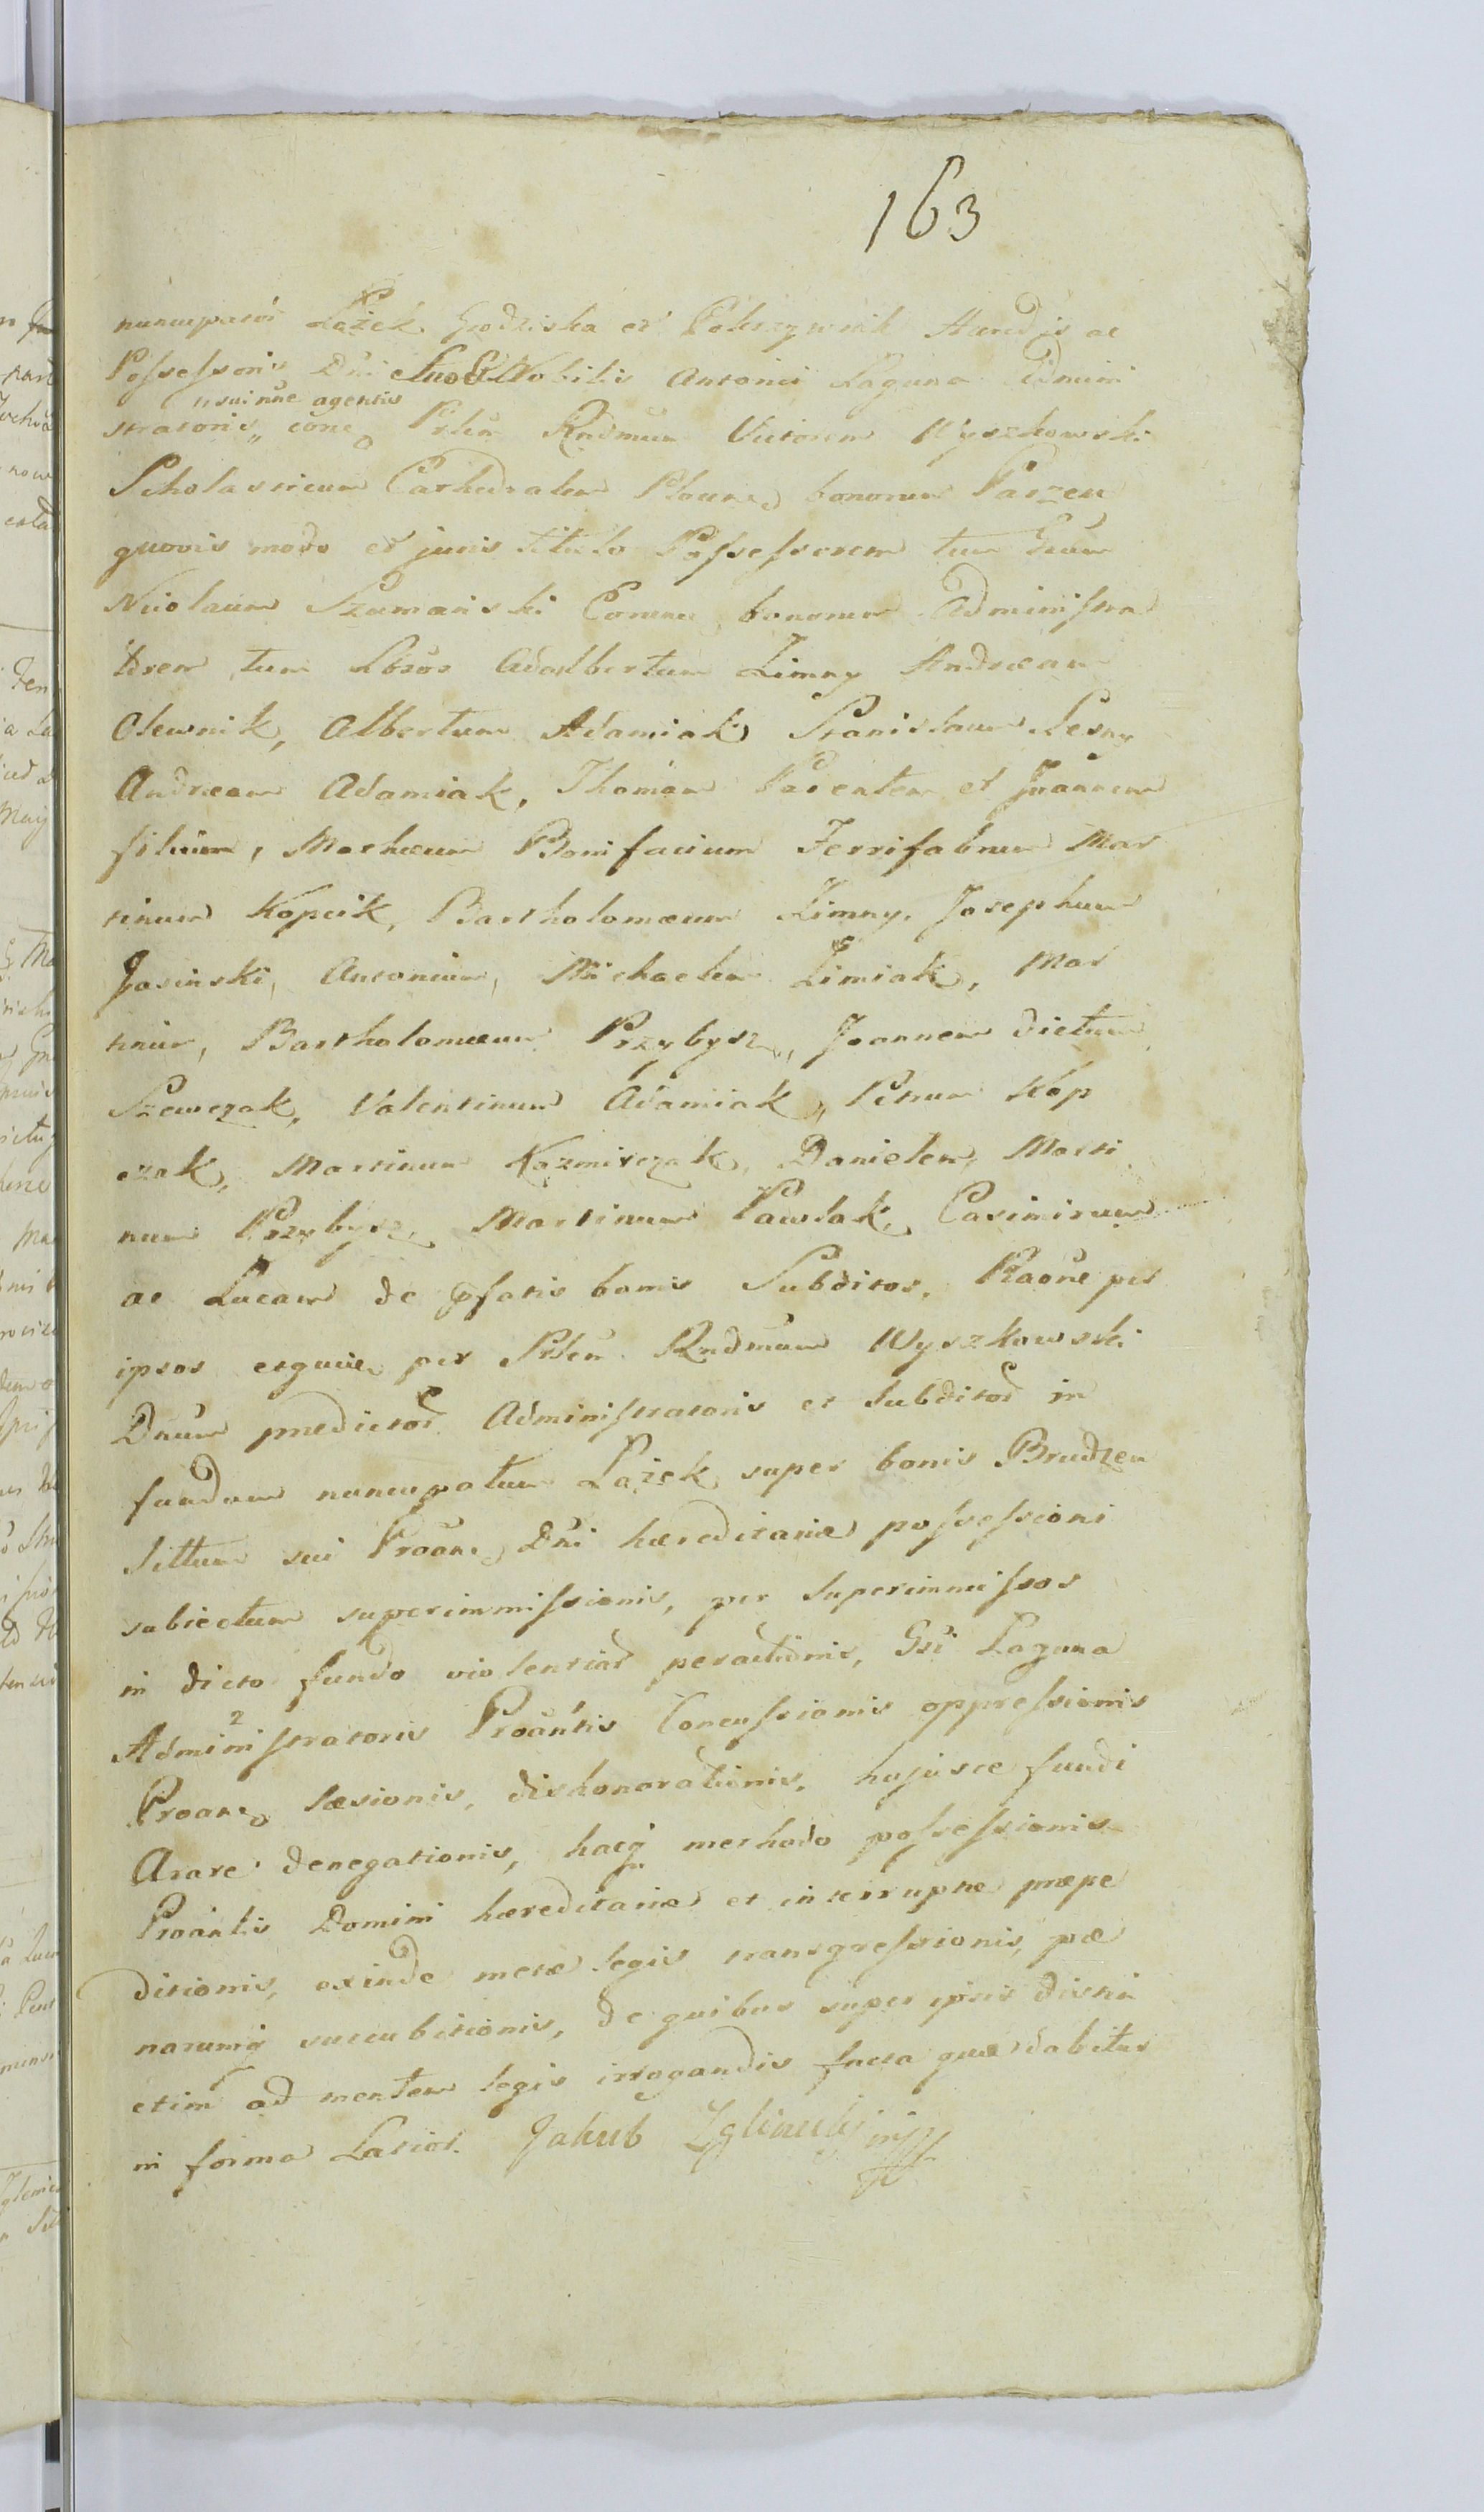 163
nuncupator Łążek Grodziska et Pokrzywnik Hæredis ac
Possessoris Dni suo & Nobilis Antonii Laguna Admini
sui nne agentis
stratoris, cõne Prlēn Rndmum Victorem Wyszkowski
Scholasticum Cathedralem Plocne bonorum Parzen
quovis modo et juris titulo Possessorem tum Gsum
Nicolaum Szumanski Eorum bonorum Administra
torem tum Lbros Adalbertum Zimny Andream
Olewnik, Albertum Adamiak Stanislaum Lesny
Andream Adamiak, Thomam Parentem et Joannem
filium, Mathæum Bonifacium Ferrifabrum Mar
tinum Kopcik, Bartholomæum Zimny, Josephum
Jasinski, Antonium, Michaelem Zimiak, Mar
tinum, Bartholomæum Przybysz, Joannem dictum
Szewczak, Valentinum Adamiak, Petrum Kop
czak, Martinum Kazmirczak, Danielem, Marti
num Przybysz, Martinum Pawlak, Casimirum
ac Lucam de pfatis bonis Subditos, Raõne per
ipsos etque per Prlēn Rndmum Wyszkowski
Dnum predictor Administratoris et Subditor in
fundum nuncupatum Łążek super bonis Brudzen
situm sui Proãn Dni hæreditariæ possessioni
subiectum superimmissionis, per superimmissos
in dicto fundo violentiar peractionis, Gsi Laguna
Administratoris Proãntis Concussionis oppressionis
2
Proan læsionis, dishonorationis, hujusce fundi
Arare denegationis, hacq methodo possessionis
Proãntis Domini hæreditariæ et interruptæ præpe
ditionis, exinde metæ legis transgressionis, pæ
narumq succubitionis, de quibus super ipsis distri
ctim ad mentem legis irrogandis facta quæ dabitur
in forma Latior. Jakub Zglinicki mp